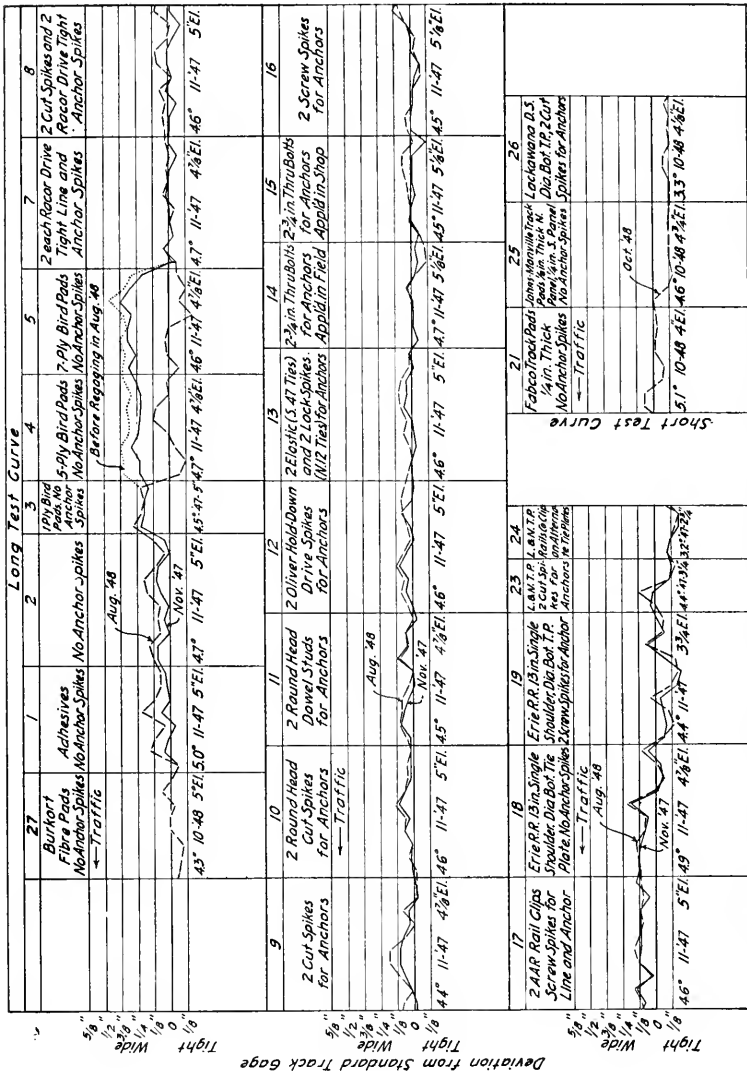 Long Test Curve
27
Burkart
Fibre Pads
No Anchor Spikes
←Traffic
4.3° 10-48 5"El.
1
Adhesives
No Anchor Spikes
5.0° 11-47 5"El.
2
No Anchor Spikes
Aug. '48
Nov. '47
4.7° 11-47 5"El.
3
1 Ply Bird
Pads, No
Anchor
Spikes
4.5° '47-5"
4
5-Ply Bird Pads
No Anchor Spikes
Before Regaging in Aug. '48
4.7° 11-47 4⅞"El.
5
7-Ply Bird Pads
No Anchor Spikes
4.6° 11-47 4⅞"El.
7
2 each Racor Drive
Tight Line and
Anchor Spikes
4.7° 11-47 4⅞"El.
8
2 Cut Spikes and 2
Racor Drive Tight
Anchor Spikes
4.6° 11-47 5"El.
5/8"
1/2"
3/8"
1/4"
1/8"
0
1/8"
Wide
Tight
9
2 Cut Spikes
for Anchors
4.4° 11-47 4⅞"El.
10
2 Round Head
Cut Spikes
for Anchors
←Traffic
4.6° 11-47 5"El.
11
2 Round Head
Dowel Studs
for Anchors
Aug. '48
Nov. '47
4.5° 11-47 4⅞"El.
12
2 Oliver Hold-Down
Drive Spikes
for Anchors
4.6° 11-47 5"El.
13
2 Elastic (S. 47 Ties)
and 2 Lock Spikes
(N.12 Ties) for Anchors
4.6° 11-47 5"El.
14
2-¾ in. Thru Bolts
for Anchors
Appl'd. in Field
4.7° 11-47 5⅛"El.
15
2-¾ in. Thru Bolts
for Anchors
Appl'd in Shop
4.5° 11-47 5⅛"El.
16
2 Screw Spikes
for Anchors
4.5° 11-47 5⅛"El.
5/8"
1/2"
3/8"
1/4"
1/8"
0
1/8"
Wide
Tight
Deviation from Standard Track Gage
17
2 A.A.R. Rail Clips
Screw Spikes for
Line and Anchor
4.6° 11-47 5"El.
18
Erie R.R. 13 in. Single
Shoulder, Dia. Bot. Tie
Plate, No Anchor Spikes
←Traffic
Aug. '48
Nov. '47
4.9° 11-47 4⅞"El.
19
Erie R.R. 13 in. Single
Shoulder, Dia. Bot. T.P.
2 Screw Spikes for Anchor
4.4° 11-47 3¾"El.
23
L.&N. T.P.
2 Cut Spi-
kes For
Anchors
4.4° 47-3¼
24
L.&N. T.P.
Rails Ga Clip
on Alterna-
te Tie Plates
3.2° 47-2¾"
5/8"
1/2"
3/8"
1/4"
1/8"
0
1/8"
Wide
Tight
Short Test Curve
21
Fabco Track Pads
¼ in. Thick
No Anchor Spikes
←Traffic
5.1° 10-48 4"El.
25
Johns-Manville Track
Pads ⅛ in. Thick N.
Panel, ¼ in. S. Panel
No Anchor Spikes
Oct. '48
4.6° 10-48 4¾"El.
26
Lackawana D.S.
Dia. Bot. T.P., 2 Cut
Spikes for Anchors
3.3° 10-48 4⅛"El.